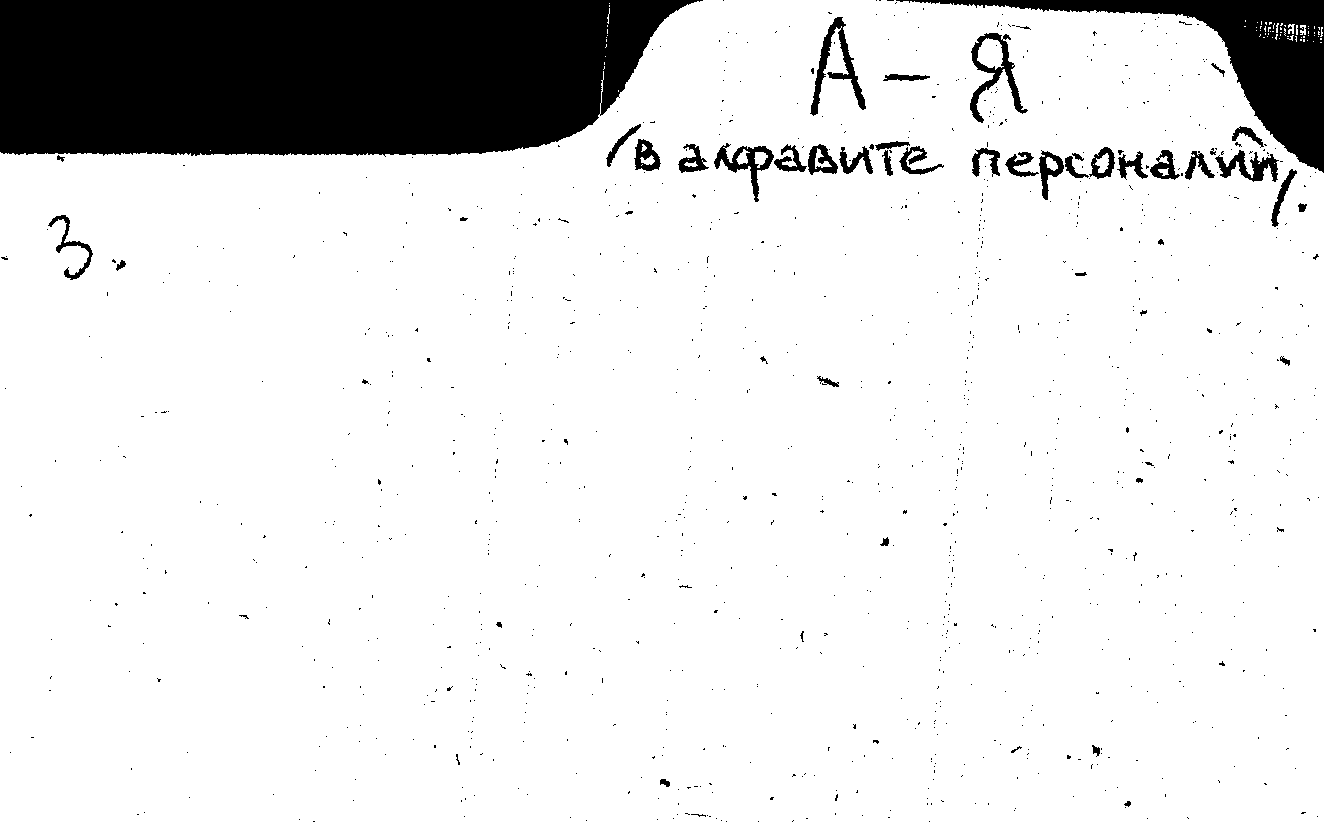 А – Я
(в алфавите персоналий).
3.